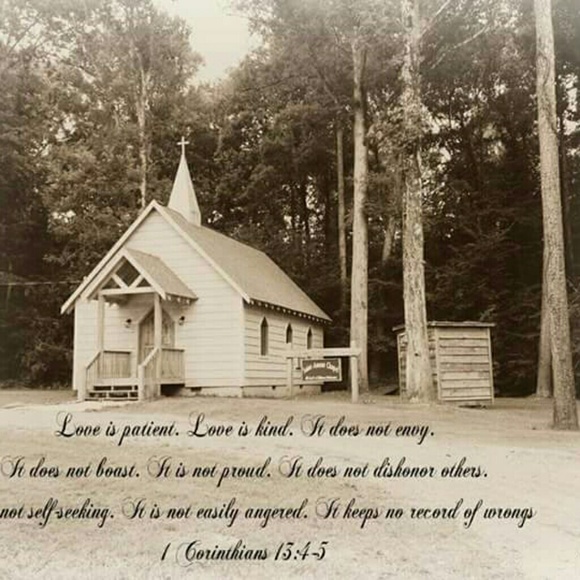 Love is patient. Love is kind. It does not envy.
It does not boast. It is not proud. It does not dishonor others.
not self-seeking. It is not easily angered. It keeps no record of wrongs
1 Corinthians 13:4-5